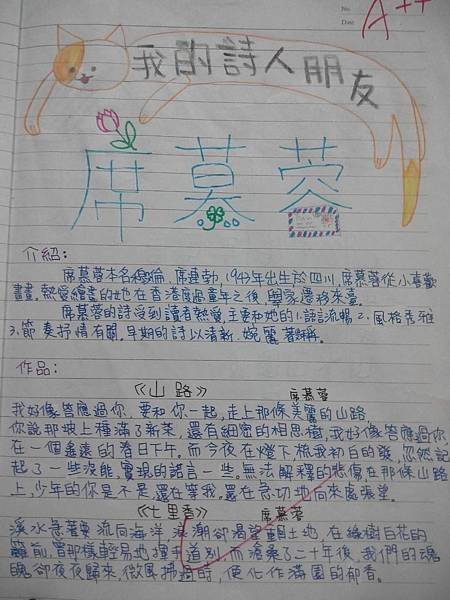 No.
Date
A++
我的詩人朋友
席慕蓉
介紹：
席慕蓉本名穆倫．席連勃，1943年出生於四川，席慕蓉從小喜歡
畫畫，熱愛繪畫的她在香港度過童年之後，舉家遷移來臺。
席慕蓉的詩受到讀者熱愛，主要和她的1.語言流暢 2.風格秀雅
3.節奏抒情有關，早期的詩以清新、婉麗著稱。
作品：
《山路》 席慕蓉
我好像答應過你，要和你一起，走上那條美麗的山路
你說那坡上種滿了新茶，還有細密的相思樹，我好像答應過你，
在一個遙遠的春日下午，而今夜在燈下梳我初白的髮，忽然記
起了一些沒能，實現的諾言一些，無法解釋的悲傷，在那條山路
上，少年的你是不是還在等我，還在急切地向來處張望
《七里香》 席慕蓉
溪水急著要流向海洋，浪潮卻渴望重歸土地，在綠樹白花的
籬前，曾那樣輕易地揮手道別，而滄桑了二十年後，我們的魂
魄卻夜夜歸來，微風拂過時，便化作滿園的郁香。